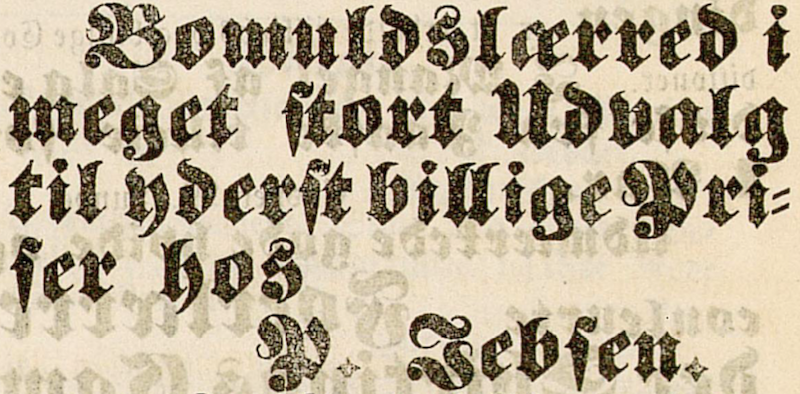 Bomuldslærred i
meget stort Udvalg
til yderst billige Pri-
ser hos
P. Jebsen.